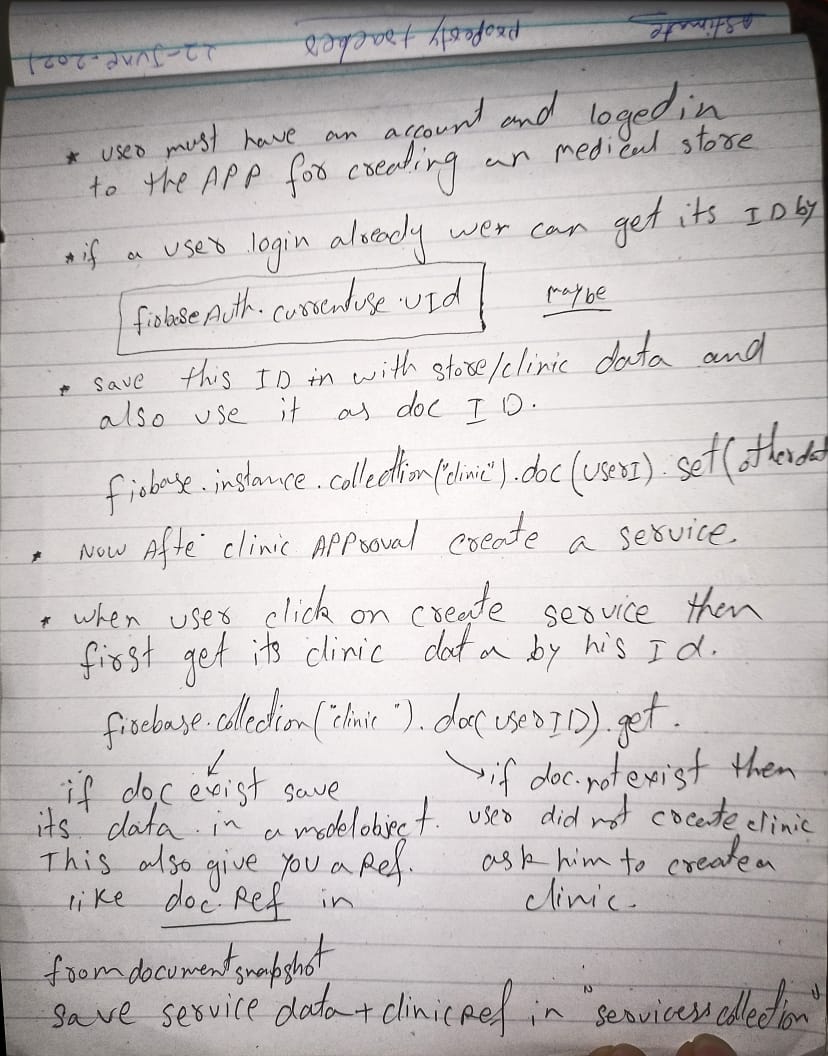 estimate property teaches 22-June-2021
* user must have an account and logedin
to the APP for creating an medical store
* if a user login already wer can get its ID by
firbase Auth. currentuse .UId maybe
* save this ID in with store/clinic data and
also use it as doc ID.
firbase.instance.collecttion("clinic").doc(userI).set(otherdat
* Now Afte clinic APProval create a service.
* when user click on create service then
first get its clinic data by his Id.
firebase.collection("clinic").doc(userID).get.
if doc exist save
its data in a modelobject.
This also give you a Ref.
like doc.Ref in
if doc.not exist then
user did not cocente clinic
ask him to create a
clinic.
from documentsnapshot
save service data + clinicRef in "servicess collection"